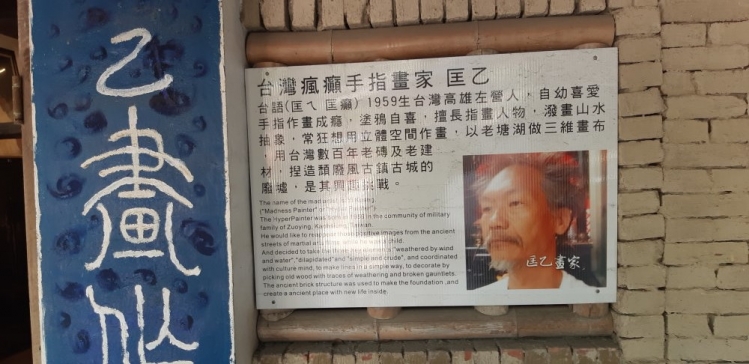 乙
畫
台灣瘋癲手指畫家 匡乙
台語(匡ㄟ 匡癲) 1959生台灣高雄左營人，自幼喜愛
手指作畫成癮，塗鴉自喜，擅長指畫人物，潑畫山水
抽象，常狂想用立體空間作畫，以老塘湖做三維畫布
，用台灣數百年老磚及老建
材，捏造頹廢風古鎮古城的
廢墟，是其興趣挑戰。
The name of the mad
("Madness Painter"
The HyperPainter was in the community of military
family of Zuoying, Kaohsiung, Taiwan.
He would like to images from the ancient
streets of martial child.
And decided to take "weathered by wind
and water", "dilapidated" and "simple and crude", and coordinated
with culture mind, to make lines in a simple way, to decorate by
picking old wood with traces of weathering and broken gauntlets.
The ancient brick structure was used to make the foundation ,and
create a ancient place with new life inside.
匡乙畫家